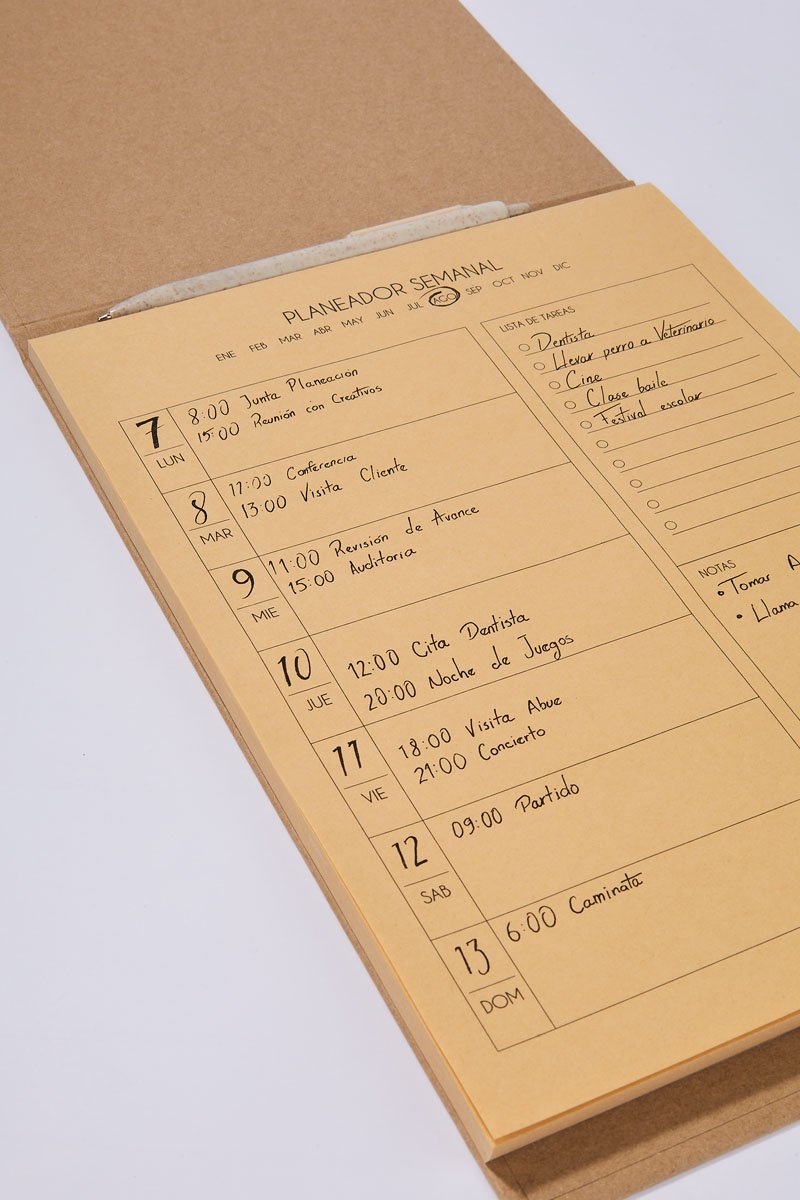 PLANEADOR SEMANAL
ENE FEB MAR ABR MAY JUN JUL AGO SEP OCT NOV DIC
7 LUN
8:00 Junta Planeación
15:00 Reunión con Creativos
8 MAR
Conferencia
13:00 Visita Cliente
9 MIE
11:00 Revisión de Avance
15:00 Auditoria
10 JUE
12:00 Cita Dentista
20:00 Noche de Juegos
11 VIE
18:00 Visita Abue
21:00 Concierto
12 SAB
09:00 Partido
13 DOM
6:00 Caminata
LISTA DE TAREAS
Dentista
Llevar perro a Veterinario
Cine
Clase baile
Festival escolar
NOTAS
• Tomar A
• Llama